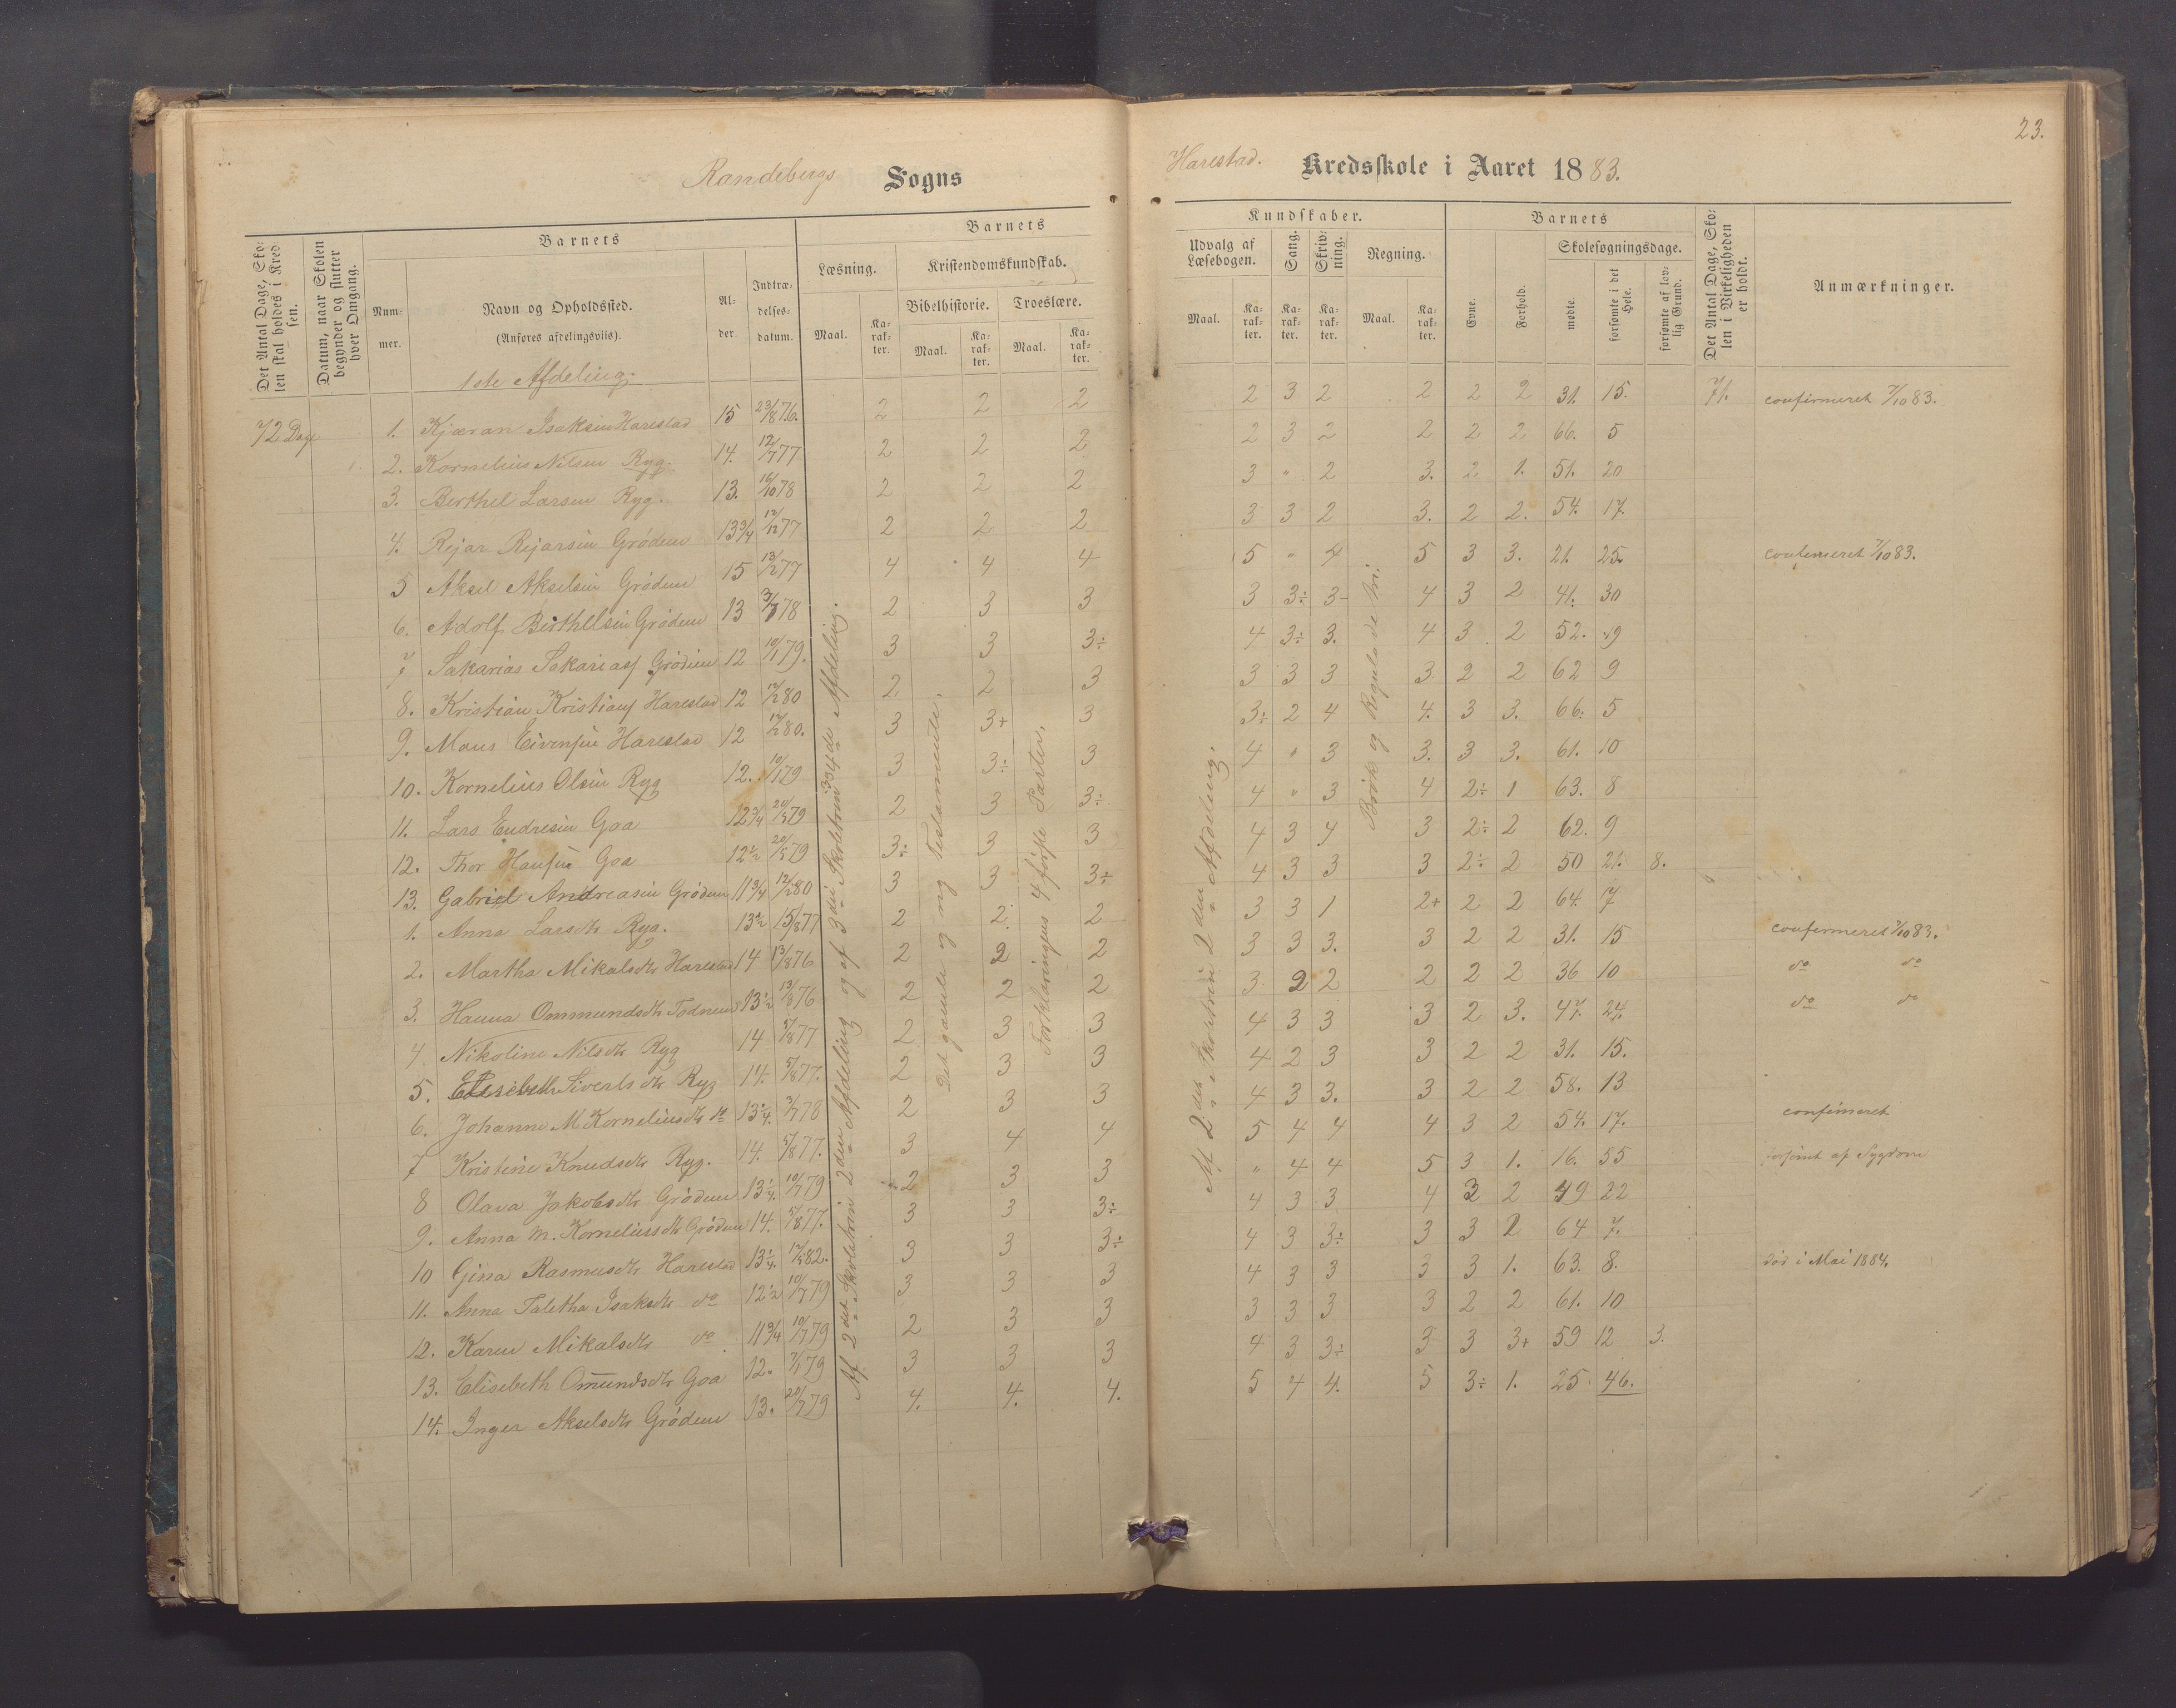 23.
Randebergs Sogns
Harestad. Kredsskole i Aaret 1883.
Det Antal Dage, Skolen skal holdes i Kredsen.
Datum, naar Skolen begynder og slutter hver Omgang.
Barnets
Nummer.
Navn og Opholdssted.
(Anføres afdelingsviis).
Alder.
Indtrædelsesdatum.
Barnets
Læsning.
Kristendomskundskab.
Bibelhistorie. Troeslære.
Maal. Karakter. Maal. Karakter. Maal. Karakter.
Kundskaber.
Udvalg af Læsebogen. Sang. Skrivning. Regning.
Maal. Karakter. Karakter. Karakter. Maal. Karakter.
Barnets
Evne. Forhold.
Skolesøgningsdage.
mødte. forsømte i det Hele. forsømte af lovlig Grund.
Det Antal Dage, Skolen i Virkeligheden er holdt.
Anmærkninger.
1ste Afdeling.
72 Dage 1. Kjæran Isaksen Harestad 15 23/8 76. 2 2 2 2 3 2 2 2 2 31. 15. 71. confirmeret 7/10 83.
2. Kornelius Nilsen Ryg. 14. 12/7 77 2 2 2 2 3 2 2 2 2 66. 5
3. Berthel Larsen Ryg. 13. 16/10 78 2 2 2 3 " 2 3. 2 1. 51. 20
4. Rejar Rejarsen Grødem 13 3/4 12/12 77 2 2 2 3 3 2 3. 2 2. 54. 17.
5 Aksel Akselsen Grødem 15 13/2 77 4 4 4 5 " 4 5 3 3. 21. 25. confirmeret 7/10 83.
6. Adolf Berthelsen Grødem 13 3/7 78 2 3 3 3 3÷ 3- 4 3 2 41. 30
7 Sakarias Sakarias Grødem 12 10/1 79. 3 3 3÷ 4 3÷ 3. 4 3 2 52. 19
8. Kristian Kristians Harestad 12 12/2 80 2 2 3 3 3 3 3 2 2 62 9
9. Maus Eivensen Harestad 12 12/2 80. 3 3+ 3 3÷ 2 4 4. 3 3. 66. 5
10. Kornelius Olsen Ryg 12. 10/1 79 3 3÷ 3 4 " 3 3. 3 3. 61. 10
11. Lars Endresen Goa 12 3/4 20/5 79 2 3 3÷ 4 " 3 4 2÷ 1 63. 8
12. Thor Hansen Goa 12 1/2 20/5 79 3÷ 3 3 4 3 4 3 2÷ 2 62. 9
13. Gabriel Andreasen Grødem 11 3/4 12/2 80 3 3 3÷ 4 3 3 3 2÷ 2 50 21. 8.
1. Anna Larsdtr Ryg. 13 1/2 15/8 77 2 2. 2 3 3 1 2+ 2 2 64. 7
2. Martha Mikalsdtr Harestad 14 13/8 76 2 2 2 3 3 3. 3 2 2 31. 15 confirmeret 7/10 83.
3. Hanna Ommundsdtr Todnem 13 1/2 13/8 76 2 2 2 3. 2 2 2 2 2 36 10 do do
4 Nikoline Nilsdtr Ryg 14 5/8 77 2 3 3 4 3 3 3 2 3. 47. 24. do do
5. Elisebeth Sivertsdtr Ryg 14. 5/8 77. 2 3 3 4 2 3 3 2 2 31. 15.
6. Johanne M Kornelius dtr do 13 1/4. 7/7 78 2 3 3 4 3 3. 3 2 2 58. 13
7 Kristine Knudsdtr Ryg. 14. 5/8 77. 3 4 4 5 4 4 4 3 2 54. 17. confirmeret
8 Olava Jakobsdtr Grødem 13 1/4. 10/7 79 2 3 3 " 4 4 5 3 1. 16. 55 forsømt af Sygdom
9. Anna M. Korneliussdtr Grødem 14. 5/8 77. 3 3 3÷ 4 3 3 4 3 2 49 22
10 Gina Rasmusdtr Harestad 13 1/4. 12/5 82. 3 3 3÷ 4 3 3÷ 3 3 2 64 7.
11. Anna Taletha Isaksdtr do 12 1/2 10/7 79 3 3 3 4 3 3 3 3 1. 63. 8. død i Mai 1884.
12. Karen Mikalsdtr do 11 3/4 10/7 79 2 3 3 3 3 3 3 2 2 61. 10
13. Elisebeth Omundsdtr Goa 12. 7/1 79 3 3 3 4 3 3÷ 3 3 3+ 59 12 3.
14. Inger Akselsdtr Grødem 13. 20/7 79 4. 4. 4. 5 4 4. 5 3÷ 1. 25. 46.
Af 2det Skoletrin 2den Afdeling og af 3die Skoletrin 3 og 4de Afdeling.
Det gamle og ny Testamente.
Forklaringens 4 første Parter.
Af 2det Skoletrin 2den Afdeling.
Brøk og Regula de tri.